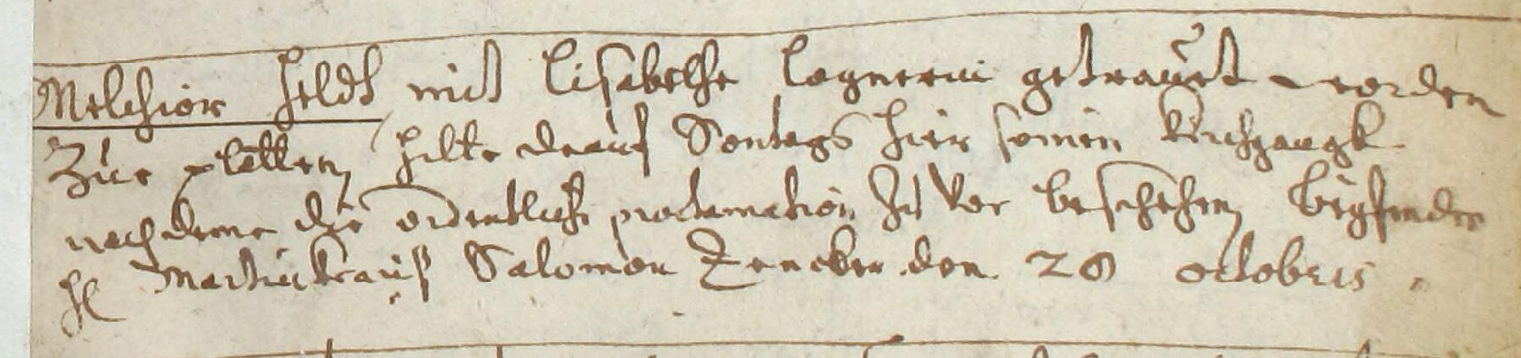 Melchior Heldt mit Lisabethe Lognerin getrauet worden
Zue platten, hilte drauf Sontags hier seinen Kirchgangk
nach deme die ordentliche proclamation Ist Vor beschehen,
H Martin Krauß Salomon Zencker den 28 octobris.